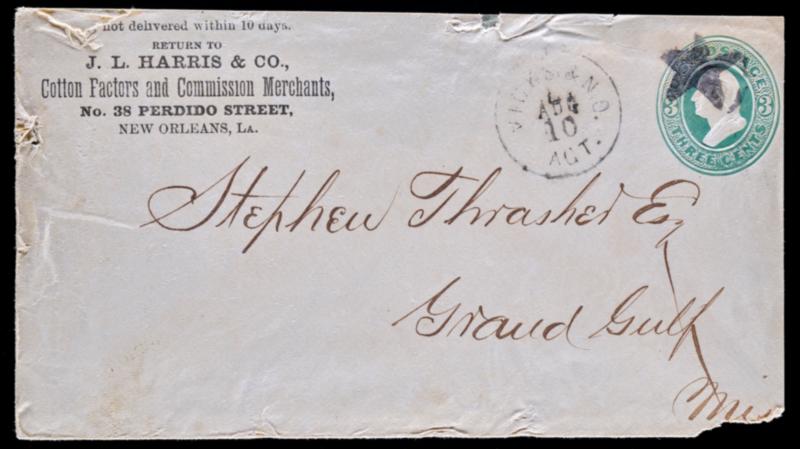 not delivered within 10 days.
RETURN TO
J. L. HARRIS & CO.,
Cotton Factors and Commission Merchants,
No. 38 PERDIDO STREET,
NEW ORLEANS, LA.
VICKS & N.O.
AUG
10
AGT.
POSTAGE
3 3
THREE CENTS
Stephen Thrasher Esq
Grand Gulf
Miss